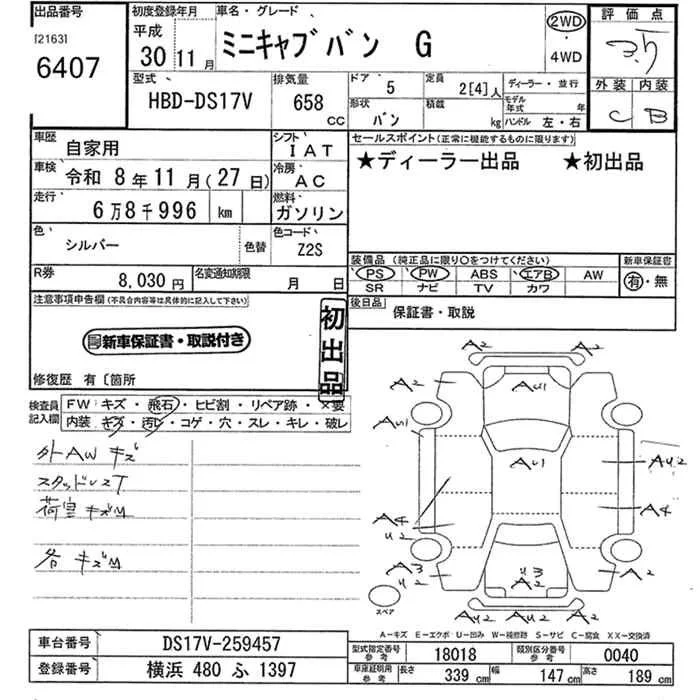 出品番号 初度登録年月 車名・グレード 評価点
[2163] 6407 平成 30 11月 ミニキャブバン G 2WD ・ 4WD 3.5
型式 HBD-DS17V 排気量 658 CC ドア 5 定員 2[4]人 ディーラー・並行 外装 内装
形状 バン 積載 kg モデル年式 年 ハンドル 左・右 C B
車歴 自家用 シフト IAT セールスポイント(正常に機能するものに限ります)
車検 令和 8年11月(27日) 冷房 AC ★ディーラー出品 ★初出品
走行 6万8千996 km 燃料 ガソリン
色 シルバー 色替 色コード Z2S
装備品(純正品に限り○をつけてください) 新車保証書
PS PW ABS エアB AW 有・無
SR ナビ TV カワ
R券 8,030円 名変通知期限 月 日
注意事項申告欄(不具合内容等は具体的に記入して下さい) 後日品 保証書・取説
新車保証書・取説付き 初出品
修復歴 有〔箇所
検査員記入欄 FW・キズ・飛石・ヒビ割・リペア跡・×要
内装・キズ・汚レ・コゲ・穴・スレ・キレ・破レ
外AW キズ
スタッドレスT
荷室キズM
各 キズM
A2 A2
A2 AU1 A2
AU1
AU1 AU2
A4 U2 A4
A3 U2 U3 A2 A2
AU2 AU2 A2
スペア
A-キズ E-エクボ U-凹み W-補修跡 S-サビ C-腐食 XX-交換済
車台番号 DS17V-259457 型式指定番号 参考 18018 類別区分番号 参考 0040
登録番号 横浜 480 ふ 1397 車庫証明用 参考 長さ 339 cm 幅 147 cm 高さ 189 cm